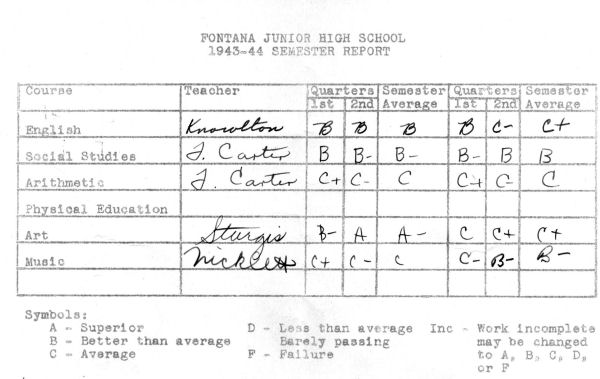 FONTANA JUNIOR HIGH SCHOOL
1943-44 SEMESTER REPORT
Course Teacher Quarters Semester Quarters Semester
1st 2nd Average 1st 2nd Average
English Knowlton B B B B C- C+
Social Studies J. Carter B B- B- B- B B
Arithmetic J. Carter C+ C- C C+ C- C
Physical Education
Art Sturgis B- A A- C C+ C+
Music C+ C- C C- B- B-
Symbols:
A - Superior D - Less than average Inc - Work incomplete
B - Better than average Barely passing may be changed
C - Average F - Failure to A, B, C, D,
or F